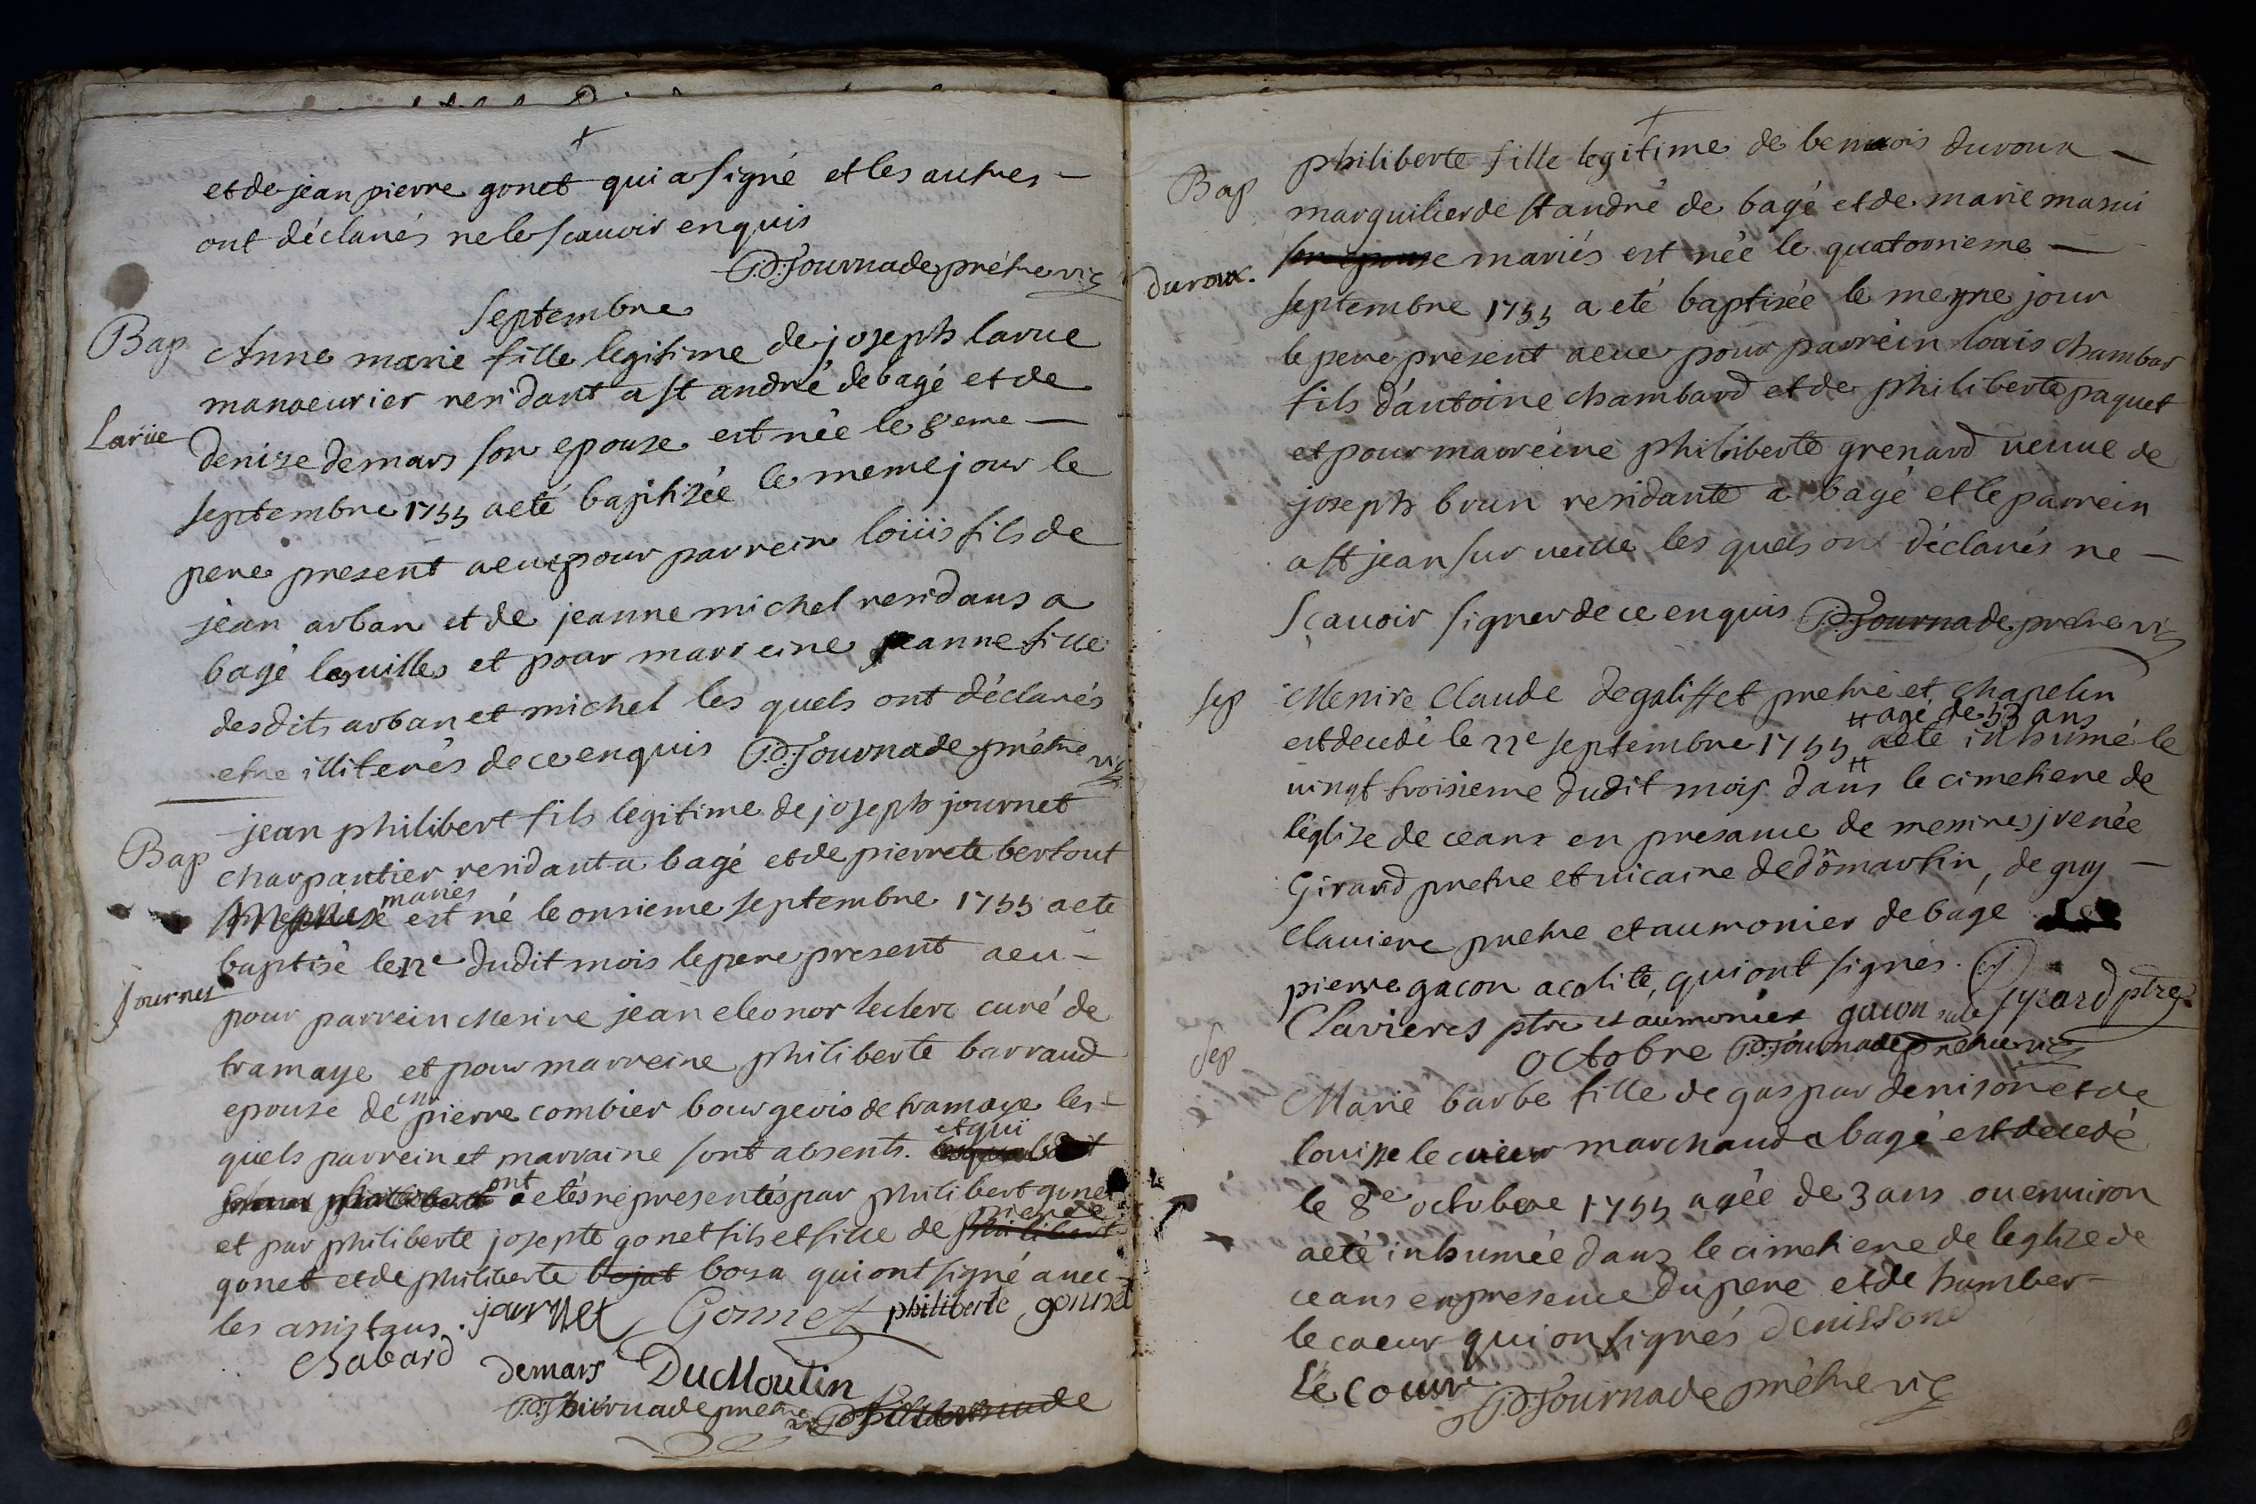 et de jean pierre gonet qui a signé et les autres
ont déclarés ne le scauoir enquis
P:D: Tournade prétre vic
Septembre
Bap
Anne marie fille legitime de joseph larue
manoeurier residant a st andré de bagé et de
Larüe
denize demars son epouse est née le 8eme
septembre 1755 a eté baptisée le meme jour le
pere present a eu pour parrein loüis fils de
jean arban et de jeanne michel residans a
bagé la uille et pour marreine jeanne fille
desdits arban et michel les quels ont déclarés
etre illiterés de ce enquis P:D: Tournade prétre vic
Bap
jean philibert fils legitime de joseph journet
charpantier residant a bagé et de pierrete bertout
mariés est né le onsieme septembre 1755 a ete
baptisé le 12e dudit mois le pere present a eu
Journet
pour parrein Mesire jean eleonor leclerc curé de
tramaye et pour marreine philiberte barraud
epouse de pierre combier bourgeois de tramaye les
quels parrein et marraine sont absents. et qui
ont etés representés par philibert gonet
et par philiberte josepte gonet fils et fille de philibert pierre
gonet et de philiberte bojat bosa qui ont signé auec
les assistans. journet Gonnet philiberte gonnet
Chabard demars DuMoulin
P:D: Tournade pretre vic
Bap
philiberte fille legitime de benoois duroux
marguilier de st andré de bagé et de marie masui
duroux.
son epouse mariés est née le quatorsieme
septembre 1755 a eté baptisée le meme jour
le pere present a eue pour parrein louis chambar
fils d'antoine chambard et de philiberte paquet
et pour marreine philiberte grenard ueuue de
joseph brun residante a bagé et le parrein
a st jean sur ueille les quels on déclarés ne
sçauoir signer de ce enquis P:D: Tournade pretre vic
sep
Messire Claude degaliffet pretre et chapelin
est decedé le 22e septembre 1755 agé de 53 ans a eté inhumé le
uingt troisieme dudit mois dans le cimetiere de
l'eglise de ceans en presance de messires jrenée
Girard pretre et uicaire de dommartin, de guy
Clauiere pretre et aumonier de bagé
pierre gacon acolite, qui ont signés. J Gyrard ptre
Clavieres ptre et aumonier gacon
Sep
Octobre P:D: Tournade pretre vic
Marie barbe fille de gaspar denison et de
louisse le cueur marchand a bagé est decedé
le 8e octobre 1755 agée de 3 ans ou enuiron
a eté inhumée dans le cimetiere de leglize de
ceans en presence du pere et de humber
le coeur qui on signés denissond
Le Couur P:D: Tournade prétre vic